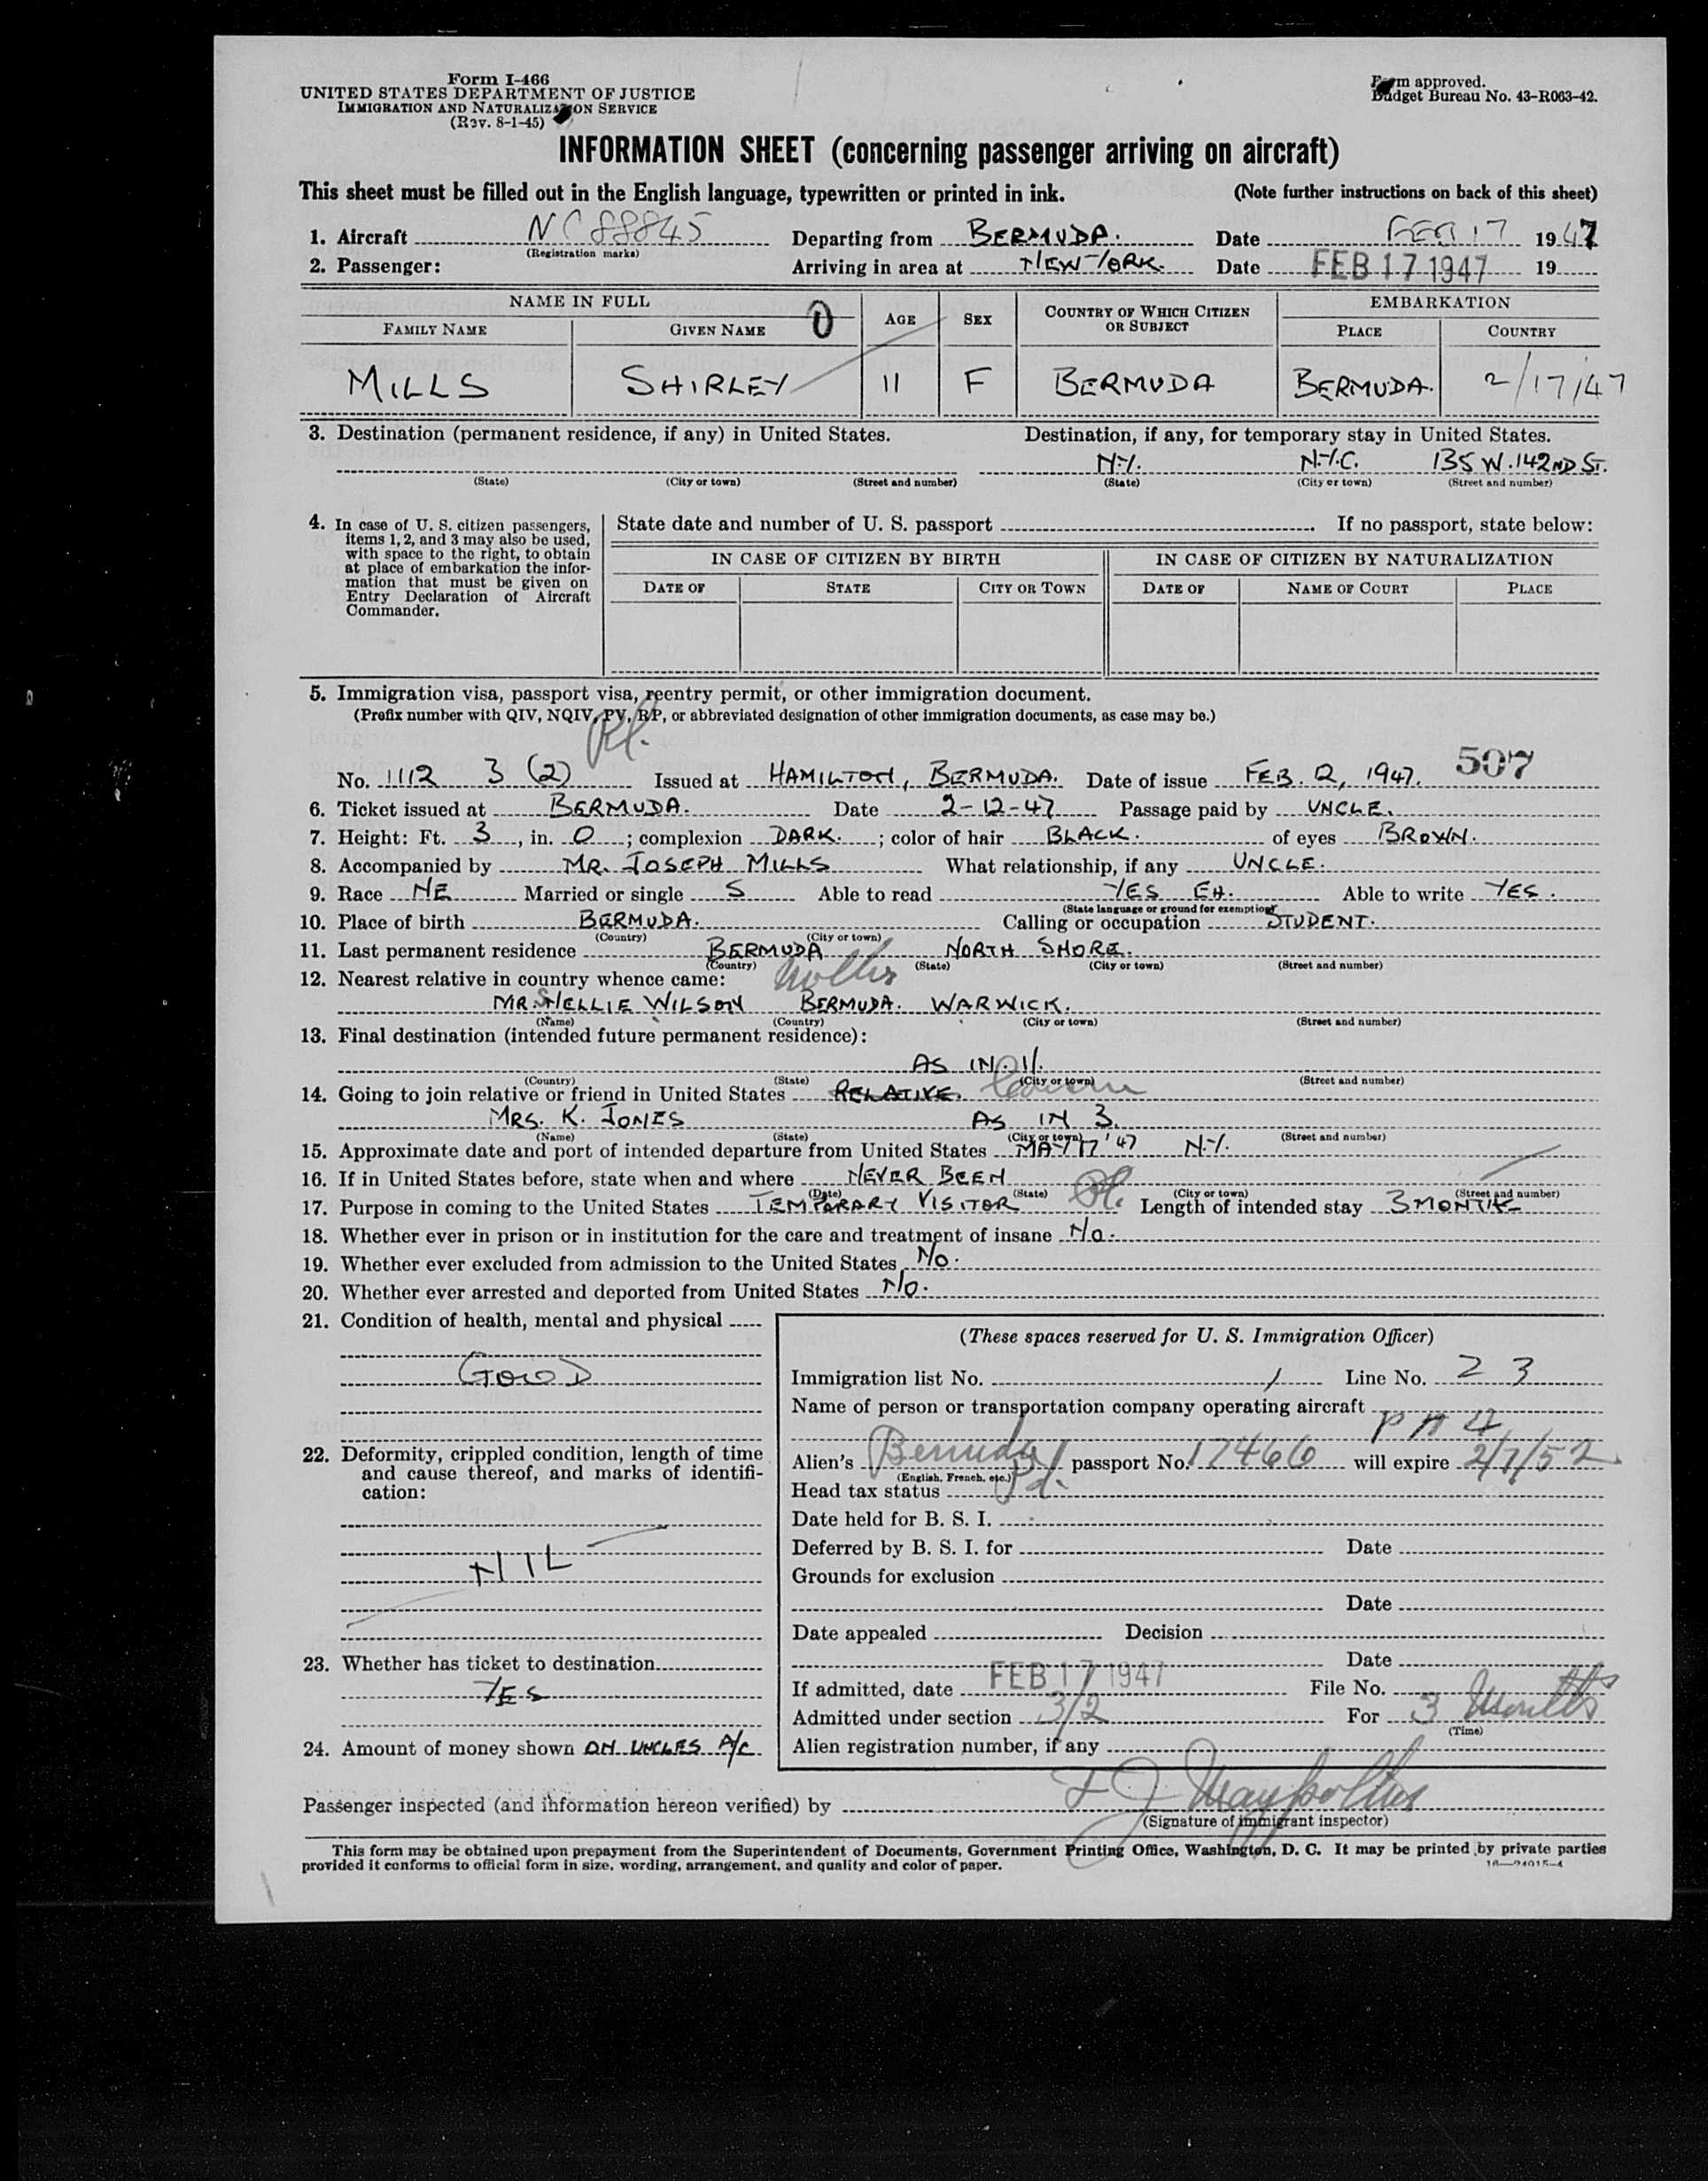 Form I-466
UNITED STATES DEPARTMENT OF JUSTICE
IMMIGRATION AND NATURALIZATION SERVICE
(Rev. 8-1-45)
Form approved.
Budget Bureau No. 43-R063-42.
INFORMATION SHEET (concerning passenger arriving on aircraft)
This sheet must be filled out in the English language, typewritten or printed in ink. (Note further instructions on back of this sheet)
1. Aircraft NC88845 Departing from BERMUDA. Date FEB 17 1947
(Registration marks)
2. Passenger: Arriving in area at NEW YORK. Date FEB 17 1947 19
NAME IN FULL AGE SEX COUNTRY OF WHICH CITIZEN OR SUBJECT EMBARKATION
FAMILY NAME GIVEN NAME PLACE COUNTRY
MILLS SHIRLEY 11 F BERMUDA BERMUDA. 2/17/47
3. Destination (permanent residence, if any) in United States. Destination, if any, for temporary stay in United States.
N.Y. N.Y.C. 135 W. 142ND ST.
(State) (City or town) (Street and number) (State) (City or town) (Street and number)
4. In case of U. S. citizen passengers, items 1, 2, and 3 may also be used, with space to the right, to obtain at place of embarkation the information that must be given on Entry Declaration of Aircraft Commander.
State date and number of U. S. passport If no passport, state below:
IN CASE OF CITIZEN BY BIRTH IN CASE OF CITIZEN BY NATURALIZATION
DATE OF STATE CITY OR TOWN DATE OF NAME OF COURT PLACE
5. Immigration visa, passport visa, reentry permit, or other immigration document.
(Prefix number with QIV, NQIV, PV, RP, or abbreviated designation of other immigration documents, as case may be.)
507
No. 1112 3 (2) Issued at HAMILTON, BERMUDA. Date of issue FEB. 2, 1947.
6. Ticket issued at BERMUDA. Date 2-12-47 Passage paid by UNCLE.
7. Height: Ft. 3, in. 0; complexion DARK.; color of hair BLACK. of eyes BROWN.
8. Accompanied by MR. JOSEPH MILLS What relationship, if any UNCLE.
9. Race NE Married or single S Able to read YES EH. Able to write YES.
(State language or ground for exemption)
10. Place of birth BERMUDA. Calling or occupation STUDENT.
(Country) (City or town)
11. Last permanent residence BERMUDA NORTH SHORE.
(Country) (State) (City or town) (Street and number)
12. Nearest relative in country whence came: Mother
MRS NELLIE WILSON BERMUDA. WARWICK.
(Name) (Country) (City or town) (Street and number)
13. Final destination (intended future permanent residence):
AS IN 11.
(Country) (State) (City or town) (Street and number)
14. Going to join relative or friend in United States RELATIVE. Cousin
MRS. K. JONES AS IN 3.
(Name) (State) (City or town) (Street and number)
15. Approximate date and port of intended departure from United States MAY 17 '47 N.Y.
16. If in United States before, state when and where NEVER BEEN
(Date) (State) (City or town) (Street and number)
17. Purpose in coming to the United States TEMPORARY VISITOR Length of intended stay 3 MONTHS
18. Whether ever in prison or in institution for the care and treatment of insane No.
19. Whether ever excluded from admission to the United States No.
20. Whether ever arrested and deported from United States No.
21. Condition of health, mental and physical
GOOD
22. Deformity, crippled condition, length of time and cause thereof, and marks of identification:
NIL
23. Whether has ticket to destination
YES
24. Amount of money shown ON UNCLES A/C
(These spaces reserved for U. S. Immigration Officer)
Immigration list No. 1 Line No. 23
Name of person or transportation company operating aircraft
P A A
Alien's Bermuda passport No. 17466 will expire 2/7/52
(English, French, etc.)
Head tax status
Date held for B. S. I.
Deferred by B. S. I. for Date
Grounds for exclusion
Date
Date appealed Decision
Date
If admitted, date FEB 17 1947 File No.
Admitted under section 3/2 For 3 Months
(Time)
Alien registration number, if any
Passenger inspected (and information hereon verified) by
(Signature of immigrant inspector)
This form may be obtained upon prepayment from the Superintendent of Documents, Government Printing Office, Washington, D. C. It may be printed by private parties
provided it conforms to official form in size, wording, arrangement, and quality and color of paper.